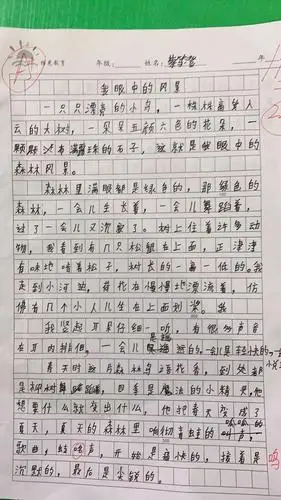 教育 年级: 姓名: 年
我眼中的风景
一只只漂亮的小鸟，一棵棵高耸入
云的大树，一朵朵五颜六色的花朵，一
颗颗 的石子，这就是我眼中的
森林风景。
森林里满眼都是绿色的，那绿色的
森林，一会儿生长着，一会儿舞蹈着，
过了一会儿又沉寂了。树上住着许多动
物，我看到有几只松鼠在上面，正津津
有味地啃着松子，树长的一高一低的。我
走到小河边，荷花在慢慢地漂淌着，仿
佛有几个小人儿坐在上面划桨。我
我竖起耳朵仔细一听，有很多声音
在耳内徘徊，一会儿是 的，一会儿是轻快的，一
春天时这片森林鸟语花香，到处都
是柳树舞蹈，四季是魔法的小精灵，他
想要什么就变出什么，他把春天变成了
夏天，夏天的森林里响彻着蛙的呱呱的叫声
歌曲，蛙鸣声，开始是愉快的，接着是
沉默的，最后是尖锐的。
鸣